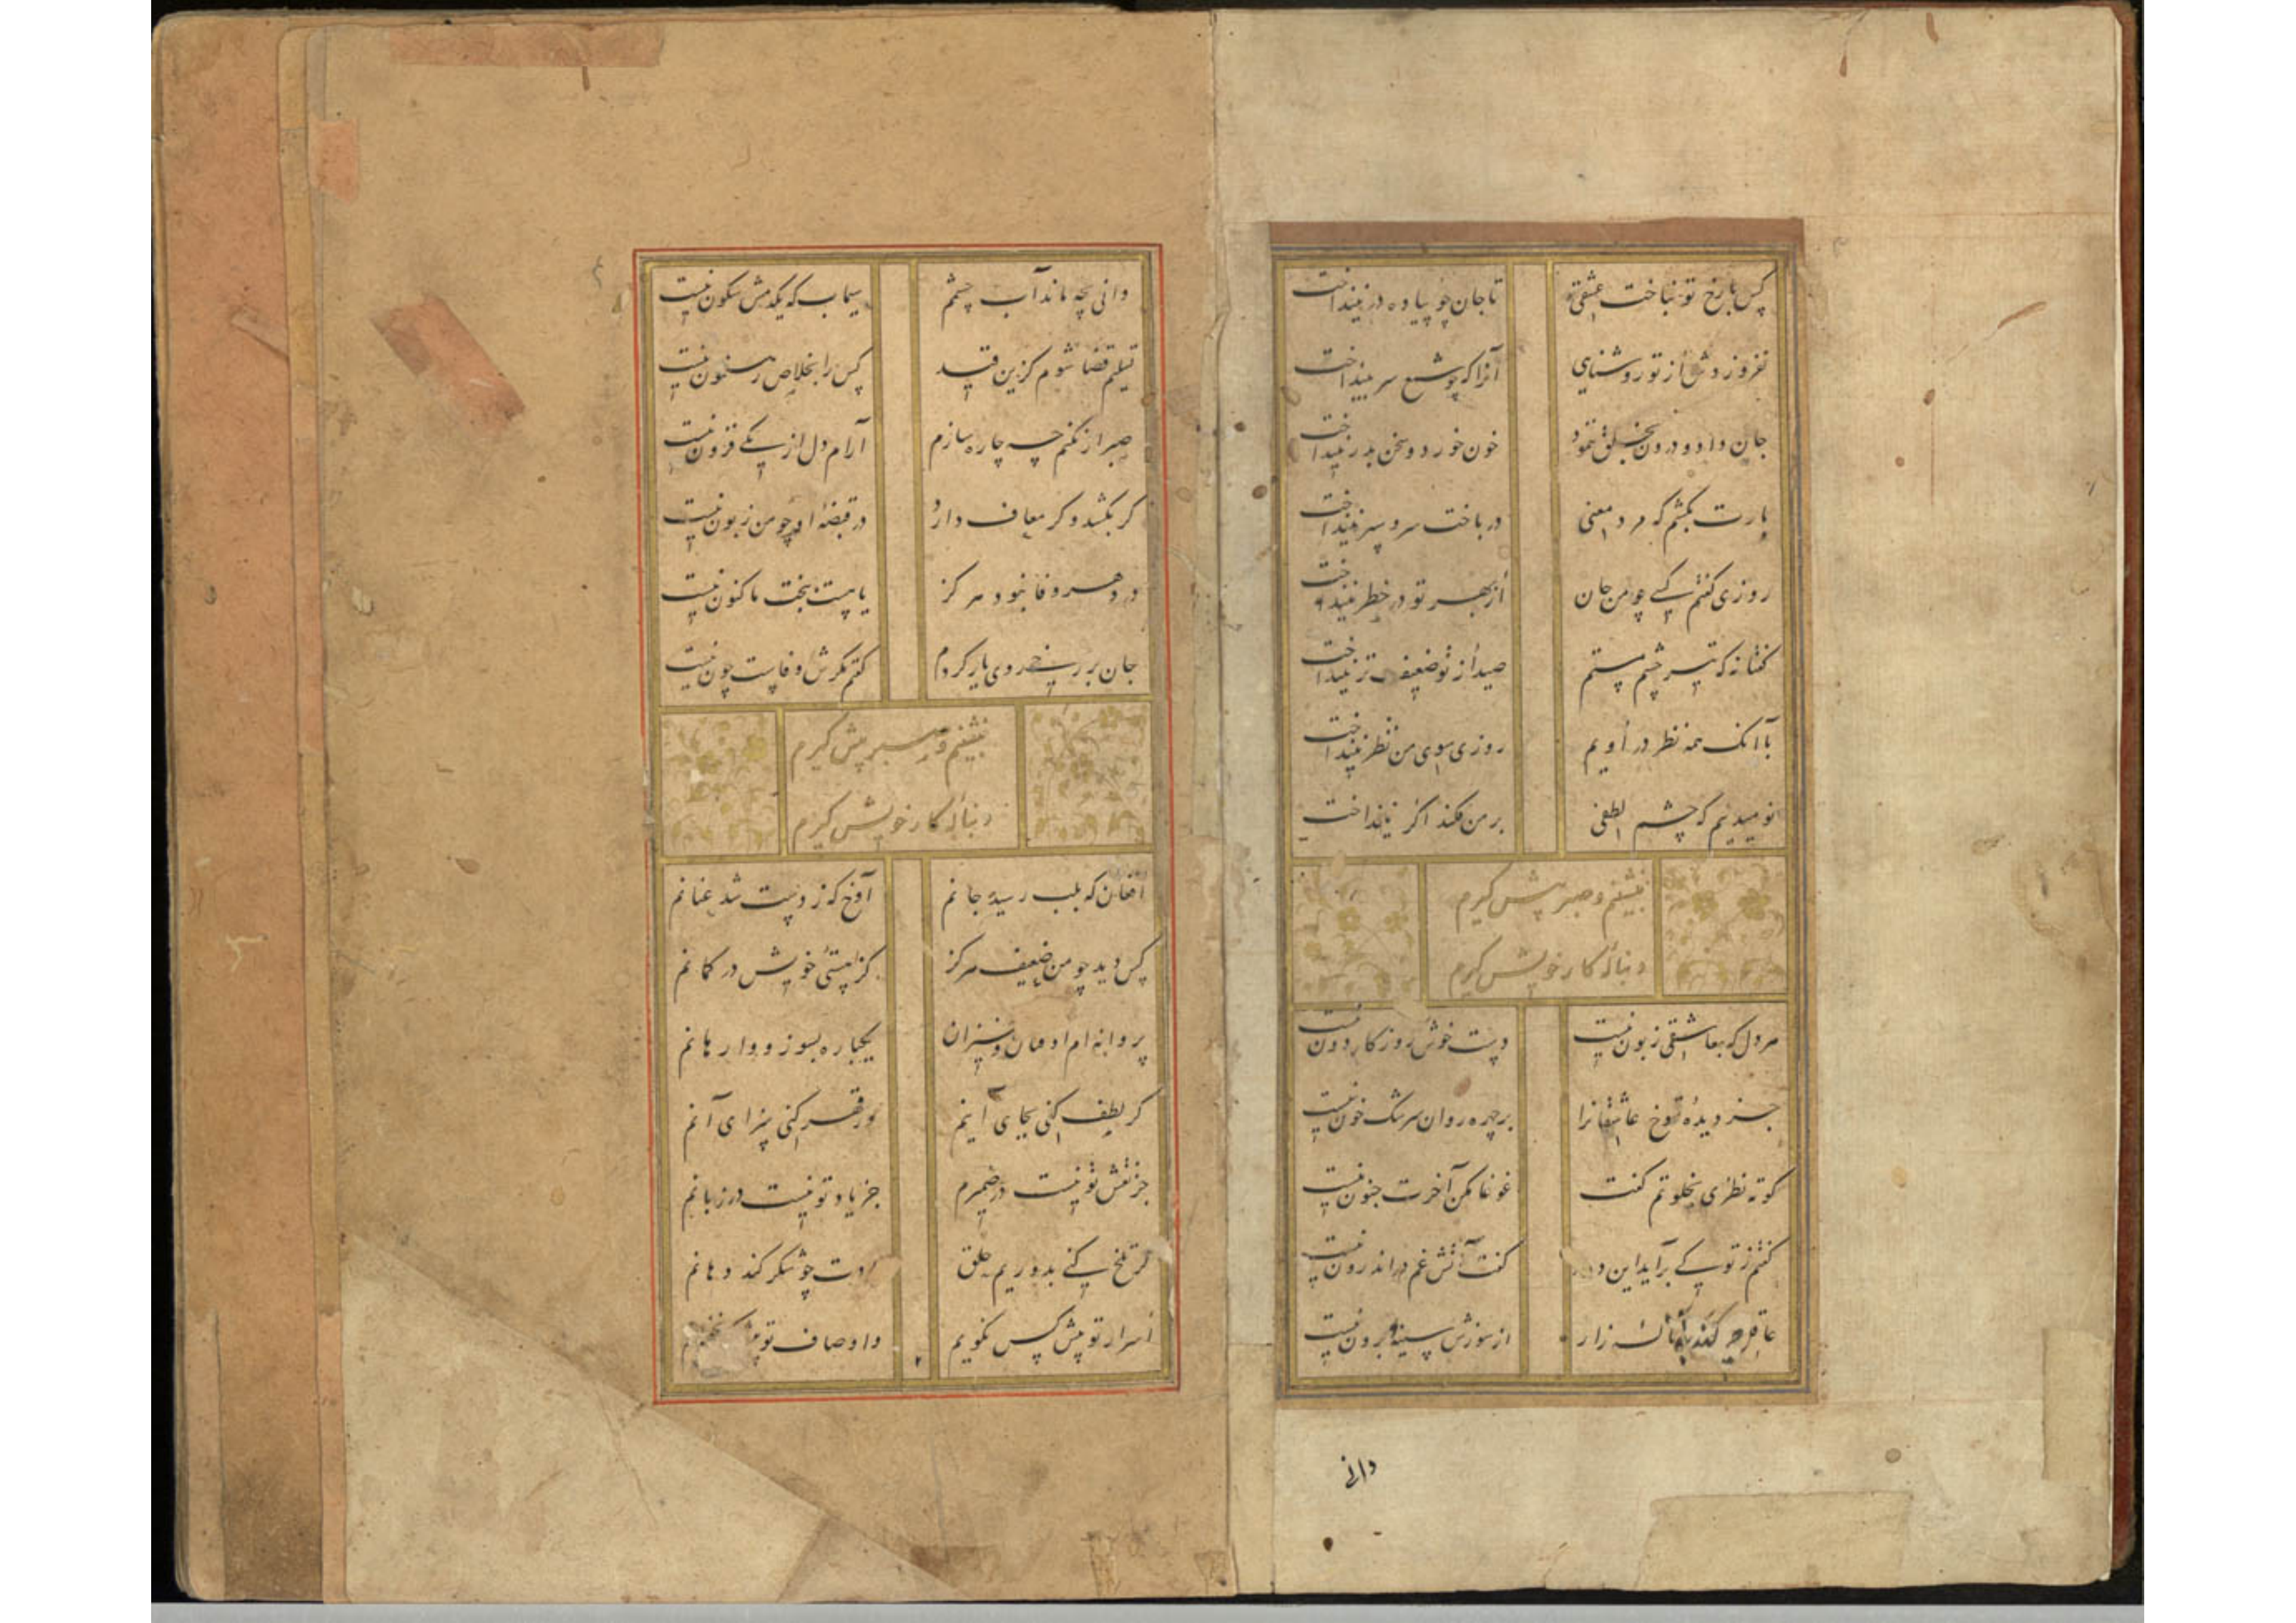 کس با رخ تو نباخت عشقی تا جان چو پیاده در نینداخت
نفروزدش از تو روشنایی آنرا که چو شمع سر نینداخت
جان داد و درون بخلق ننمود خون خورد و سخن بدر نینداخت
بارت بکشم که مرد معنی در باخت سر و سپر نینداخت
روزی گفتم کسی چو من جان از بهر تو در خطر نینداخت
گفتا نه که تیر چشم مستم صید از تو ضعیف تر نینداخت
با آنک همه نظر در اویم روزی سوی من نظر نینداخت
نومید نیم که چشم لطفی بر من فکند اگر نینداخت
بنشینم و صبر پیش گیرم
دنباله کار خویش گیرم
هر دل که بعاشقی زبون نیست دست خوش روزگار دون نیست
جز دیده شوخ عاشقانرا بر چهره روان سرشک خون نیست
کوته نظری بخلوتم گفت غوغا مکن آخرت جنون نیست
گفتم ز تو کی برآید این دود کت آتش غم در اندرون نیست
عاقل چه کند ناله زار از سوزش سینه برون نیست
دانی
دانی بچه ماند آب چشمم سیماب که یکدمش سکون نیست
تسلیم قضا شوم کزین قید کس را بخلاص رهنمون نیست
صبر ار نکنم چه چاره سازم آرام دل از یکی فزون نیست
گر بکشد و گر معاف دارد در قبضه او چو من زبون نیست
در دهر وفا نبود هرگز یا هست ببخت ما کنون نیست
جان بر رخ روی یار کردم گفتم مگرش وفاست چون نیست
بنشینم و صبر پیش گیرم
دنباله کار خویش گیرم
افغان که بلب رسید جانم آوخ که ز دست شد عنانم
کس دید چو من ضعیف هرگز کز هستی خویش در گمانم
پروانه ام اوفتان و خیزان یکباره بسوز و وارهانم
گر لطف کنی بجای اینم ور قهر کنی سزای آنم
جز نقش تو نیست در ضمیرم جز یاد تو نیست در زبانم
گر تلخ کنی بدوریم خلق یادت چو شکر کند دهانم
اسرار تو پیش کس نگویم و اوصاف تو